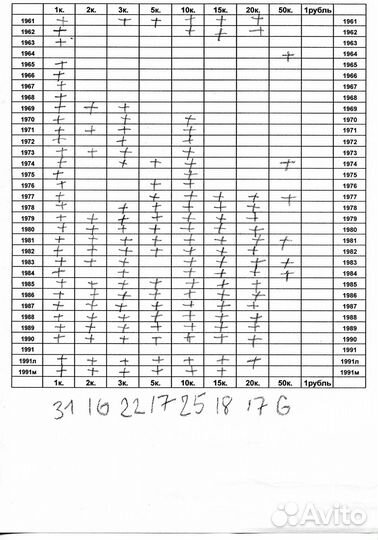 1к. 2к. 3к. 5к. 10к. 15к. 20к. 50к. 1рубль
1961 + + + + + + 1961
1962 + + + + 1962
1963 + 1963
1964 + 1964
1965 + 1965
1966 + 1966
1967 + 1967
1968 + 1968
1969 + + + 1969
1970 + + + 1970
1971 + + + + 1971
1972 + + + 1972
1973 + + + + 1973
1974 + + + + + 1974
1975 + + 1975
1976 + + + 1976
1977 + + + + + + 1977
1978 + + + + + + 1978
1979 + + + + + + + 1979
1980 + + + + + + + 1980
1981 + + + + + + + + 1981
1982 + + + + + + + 1982
1983 + + + + + + + 1983
1984 + + + + + + 1984
1985 + + + + + + + 1985
1986 + + + + + + + 1986
1987 + + + + + + + 1987
1988 + + + + + + + 1988
1989 + + + + + + + 1989
1990 + + + + + + + 1990
1991 1991
1991л + + + + + + + 1991л
1991м + + + + + + 1991м
1к. 2к. 3к. 5к. 10к. 15к. 20к. 50к. 1рубль
31 16 22 17 25 18 17 6
Avito